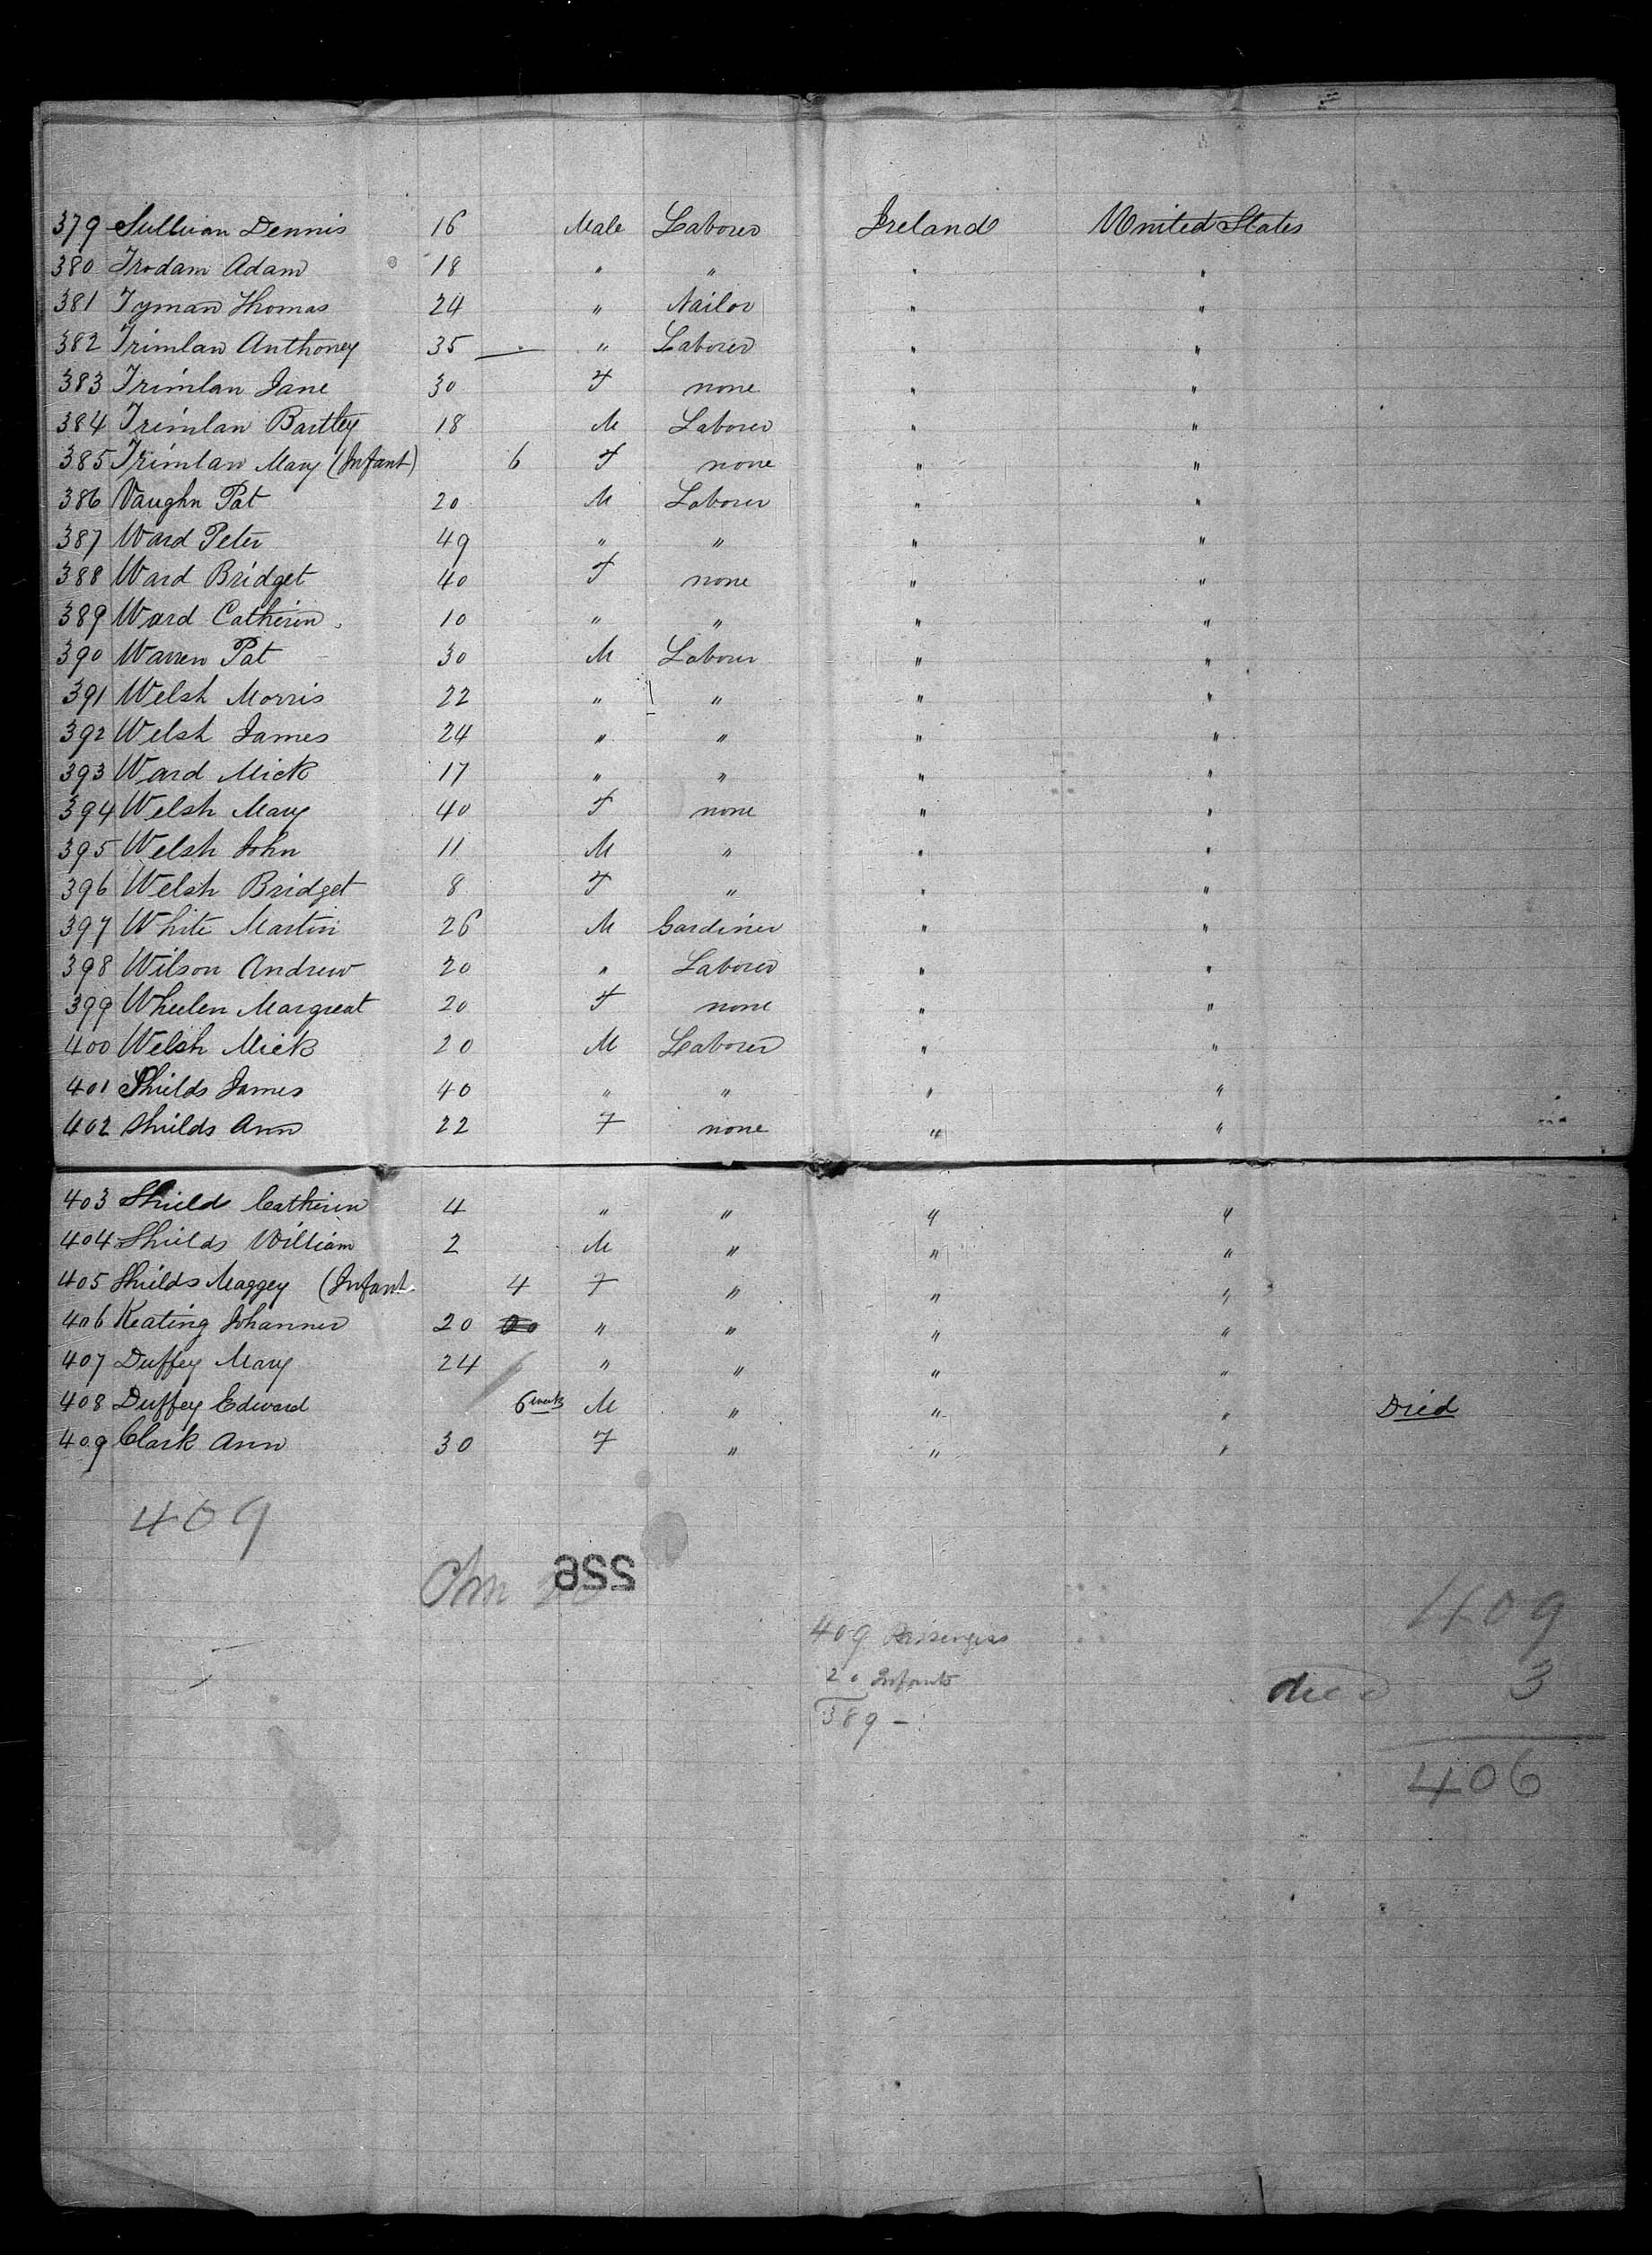 379 Sullivan Dennis 16 Male Laborer Ireland United States
380 Trodam Adam 18 " " " "
381 Tyman Thomas 24 " Nailor " "
382 Trimlan Anthoney 35 " Laborer " "
383 Trimlan Jane 30 F none " "
384 Trimlan Bartley 18 M Laborer " "
385 Trimlan Mary (Infant) 6 F none " "
386 Vaughn Pat 20 M Laborer " "
387 Ward Peter 49 " " " "
388 Ward Bridget 40 F none " "
389 Ward Catherin 10 " " " "
390 Warren Pat 30 M Laborer " "
391 Welsh Morris 22 " " " "
392 Welsh James 24 " " " "
393 Ward Mick 17 " " " "
394 Welsh Mary 40 F none " "
395 Welsh John 11 M " " "
396 Welsh Bridget 8 F " " "
397 White Martin 26 M Gardiner " "
398 Wilson Andrew 20 " Laborer " "
399 Wheelen Margreat 20 F none " "
400 Welsh Mick 20 M Laborer " "
401 Shields James 40 " " " "
402 Shields Ann 22 F none " "
403 Shield Catherin 4 " " " "
404 Shields William 2 M " " "
405 Shields Maggey (Infant 4 F " " "
406 Keating Johanner 20 " " " "
407 Duffey Mary 24 " " " "
408 Duffey Edward 6 weeks M " " " Died
409 Clark Ann 30 F " " "
409
556
409 Passengers
20 Infants
389 -
409
died 3
406